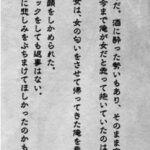 だ。酒に酔った勢いもあり、そのままの
今まで俺が女だと思って抱いていたのは
女は、女の匂いをさせて帰ってきた俺を責
顔をしかめられた。
ックをしても返事はない。
に悲しみをぶちまけてほしかったのかも